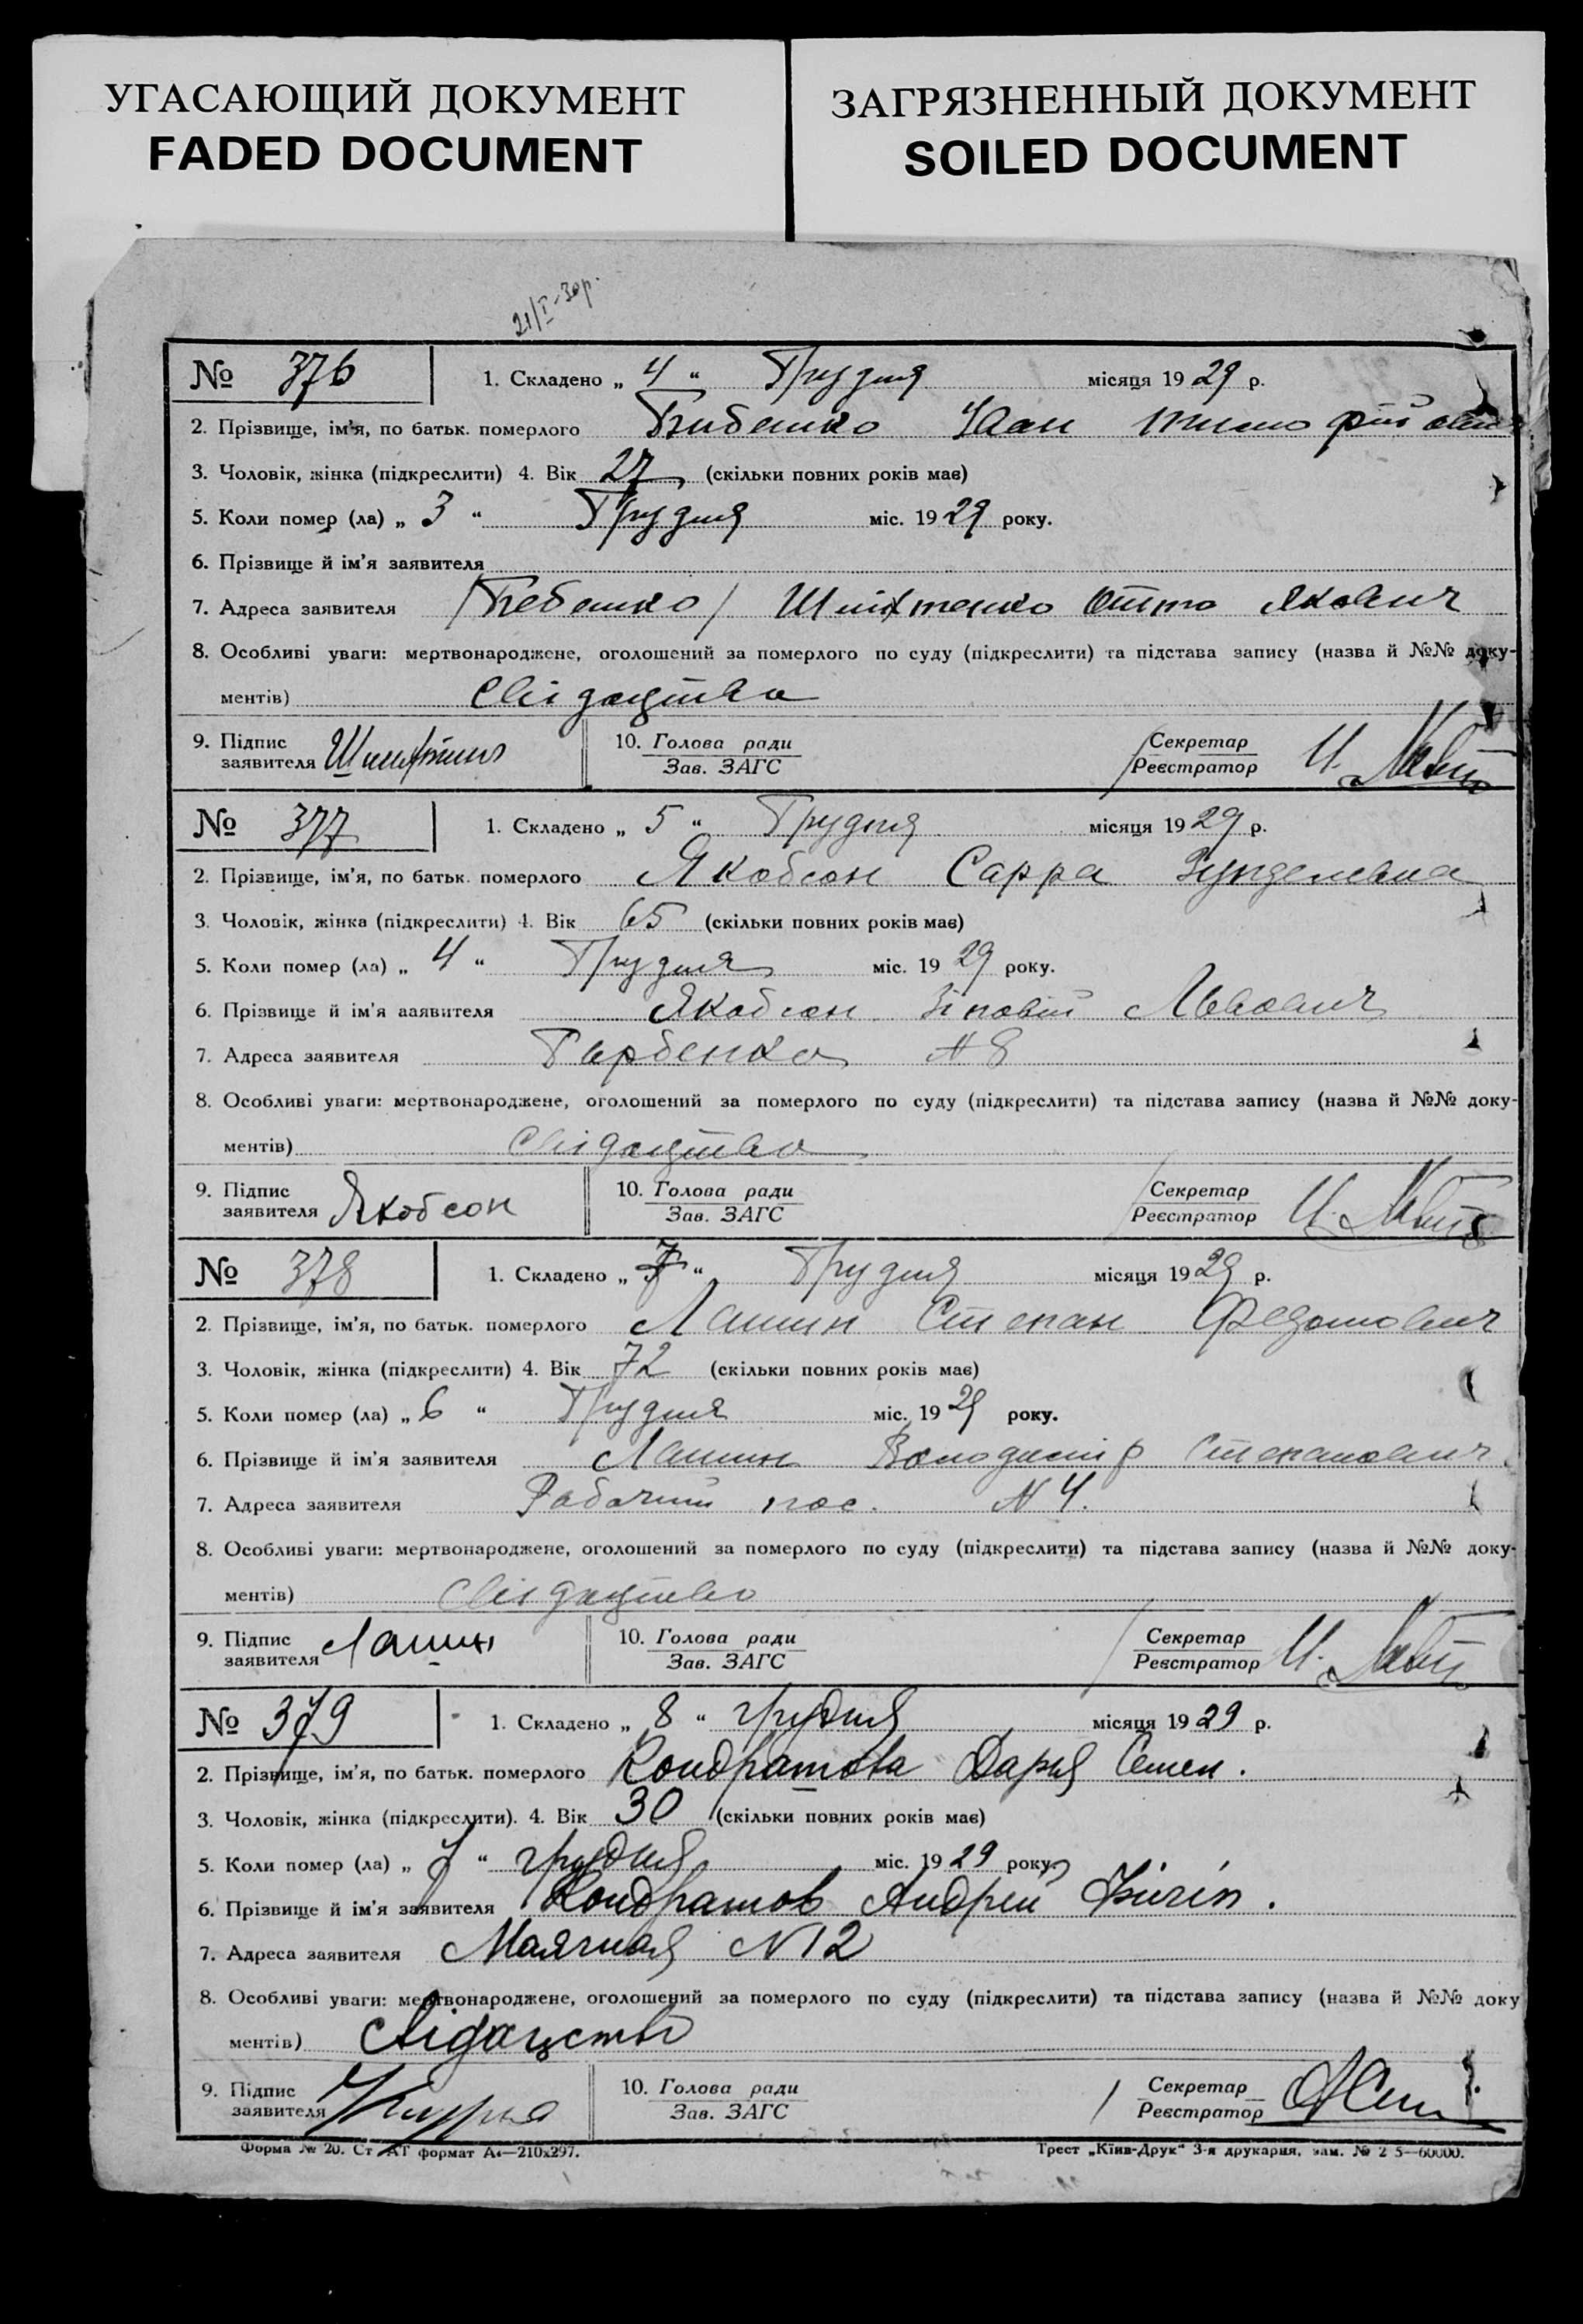 УГАСАЮЩИЙ ДОКУМЕНТ
FADED DOCUMENT
ЗАГРЯЗНЕННЫЙ ДОКУМЕНТ
SOILED DOCUMENT
21/I-30р.
№ 376 1. Складено „ 4 “ Грудня місяця 1929 р.
2. Прізвище, ім'я, по батьк. померлого Бибешко Іван
3. Чоловік, жінка (підкреслити) 4. Вік 27 (скільки повних років має)
5. Коли помер (ла) „ 3 “ Грудня міс. 1929 року.
6. Прізвище й ім'я заявителя
7. Адреса заявителя /Бебешко/ Отто Якович
8. Особливі уваги: мертвонароджене, оголошений за померлого по суду (підкреслити) та підстава запису (назва й №№ доку-
ментів) Свідоцтво
9. Підпис заявителя 10. Голова ради Зав. ЗАГС Секретар Реєстратор
№ 377 1. Складено „ 5 “ Грудня місяця 1929 р.
2. Прізвище, ім'я, по батьк. померлого Якобсон Сарра Зунделевна
3. Чоловік, жінка (підкреслити) 4. Вік 65 (скільки повних років має)
5. Коли помер (ла) „ 4 “ Грудня міс. 1929 року.
6. Прізвище й ім'я заявителя Якобсон Зіновій Львович
7. Адреса заявителя Гарбенко № 8
8. Особливі уваги: мертвонароджене, оголошений за померлого по суду (підкреслити) та підстава запису (назва й №№ доку-
ментів) Свідоцтво
9. Підпис заявителя Якобсон 10. Голова ради Зав. ЗАГС Секретар Реєстратор
№ 378 1. Складено „ 7 “ Грудня місяця 1929 р.
2. Прізвище, ім'я, по батьк. померлого Лашин Степан Федотович
3. Чоловік, жінка (підкреслити) 4. Вік 72 (скільки повних років має)
5. Коли помер (ла) „ 6 “ Грудня міс. 1929 року.
6. Прізвище й ім'я заявителя Лашин Володимір Степанович
7. Адреса заявителя Рабочий пос. № 4.
8. Особливі уваги: мертвонароджене, оголошений за померлого по суду (підкреслити) та підстава запису (назва й №№ доку-
ментів) Свідоцтво
9. Підпис заявителя Лашин 10. Голова ради Зав. ЗАГС Секретар Реєстратор
№ 379 1. Складено „ 8 “ грудня місяця 1929 р.
2. Прізвище, ім'я, по батьк. померлого Кондратова Дарья Семен.
3. Чоловік, жінка (підкреслити). 4. Вік 30 (скільки повних років має)
5. Коли помер (ла) „ 7 “ грудня міс. 1929 року.
6. Прізвище й ім'я заявителя Кондратов Андрей
7. Адреса заявителя Маячная № 12
8. Особливі уваги: мертвонароджене, оголошений за померлого по суду (підкреслити) та підстава запису (назва й №№ доку
ментів) Свідоцство
9. Підпис заявителя 10. Голова ради Зав. ЗАГС Секретар Реєстратор
Форма № 20. Ст АТ формат А4—210x297. Трест „Київ-Друк“ 3-я друкарня, зам. № 2 5—60000.